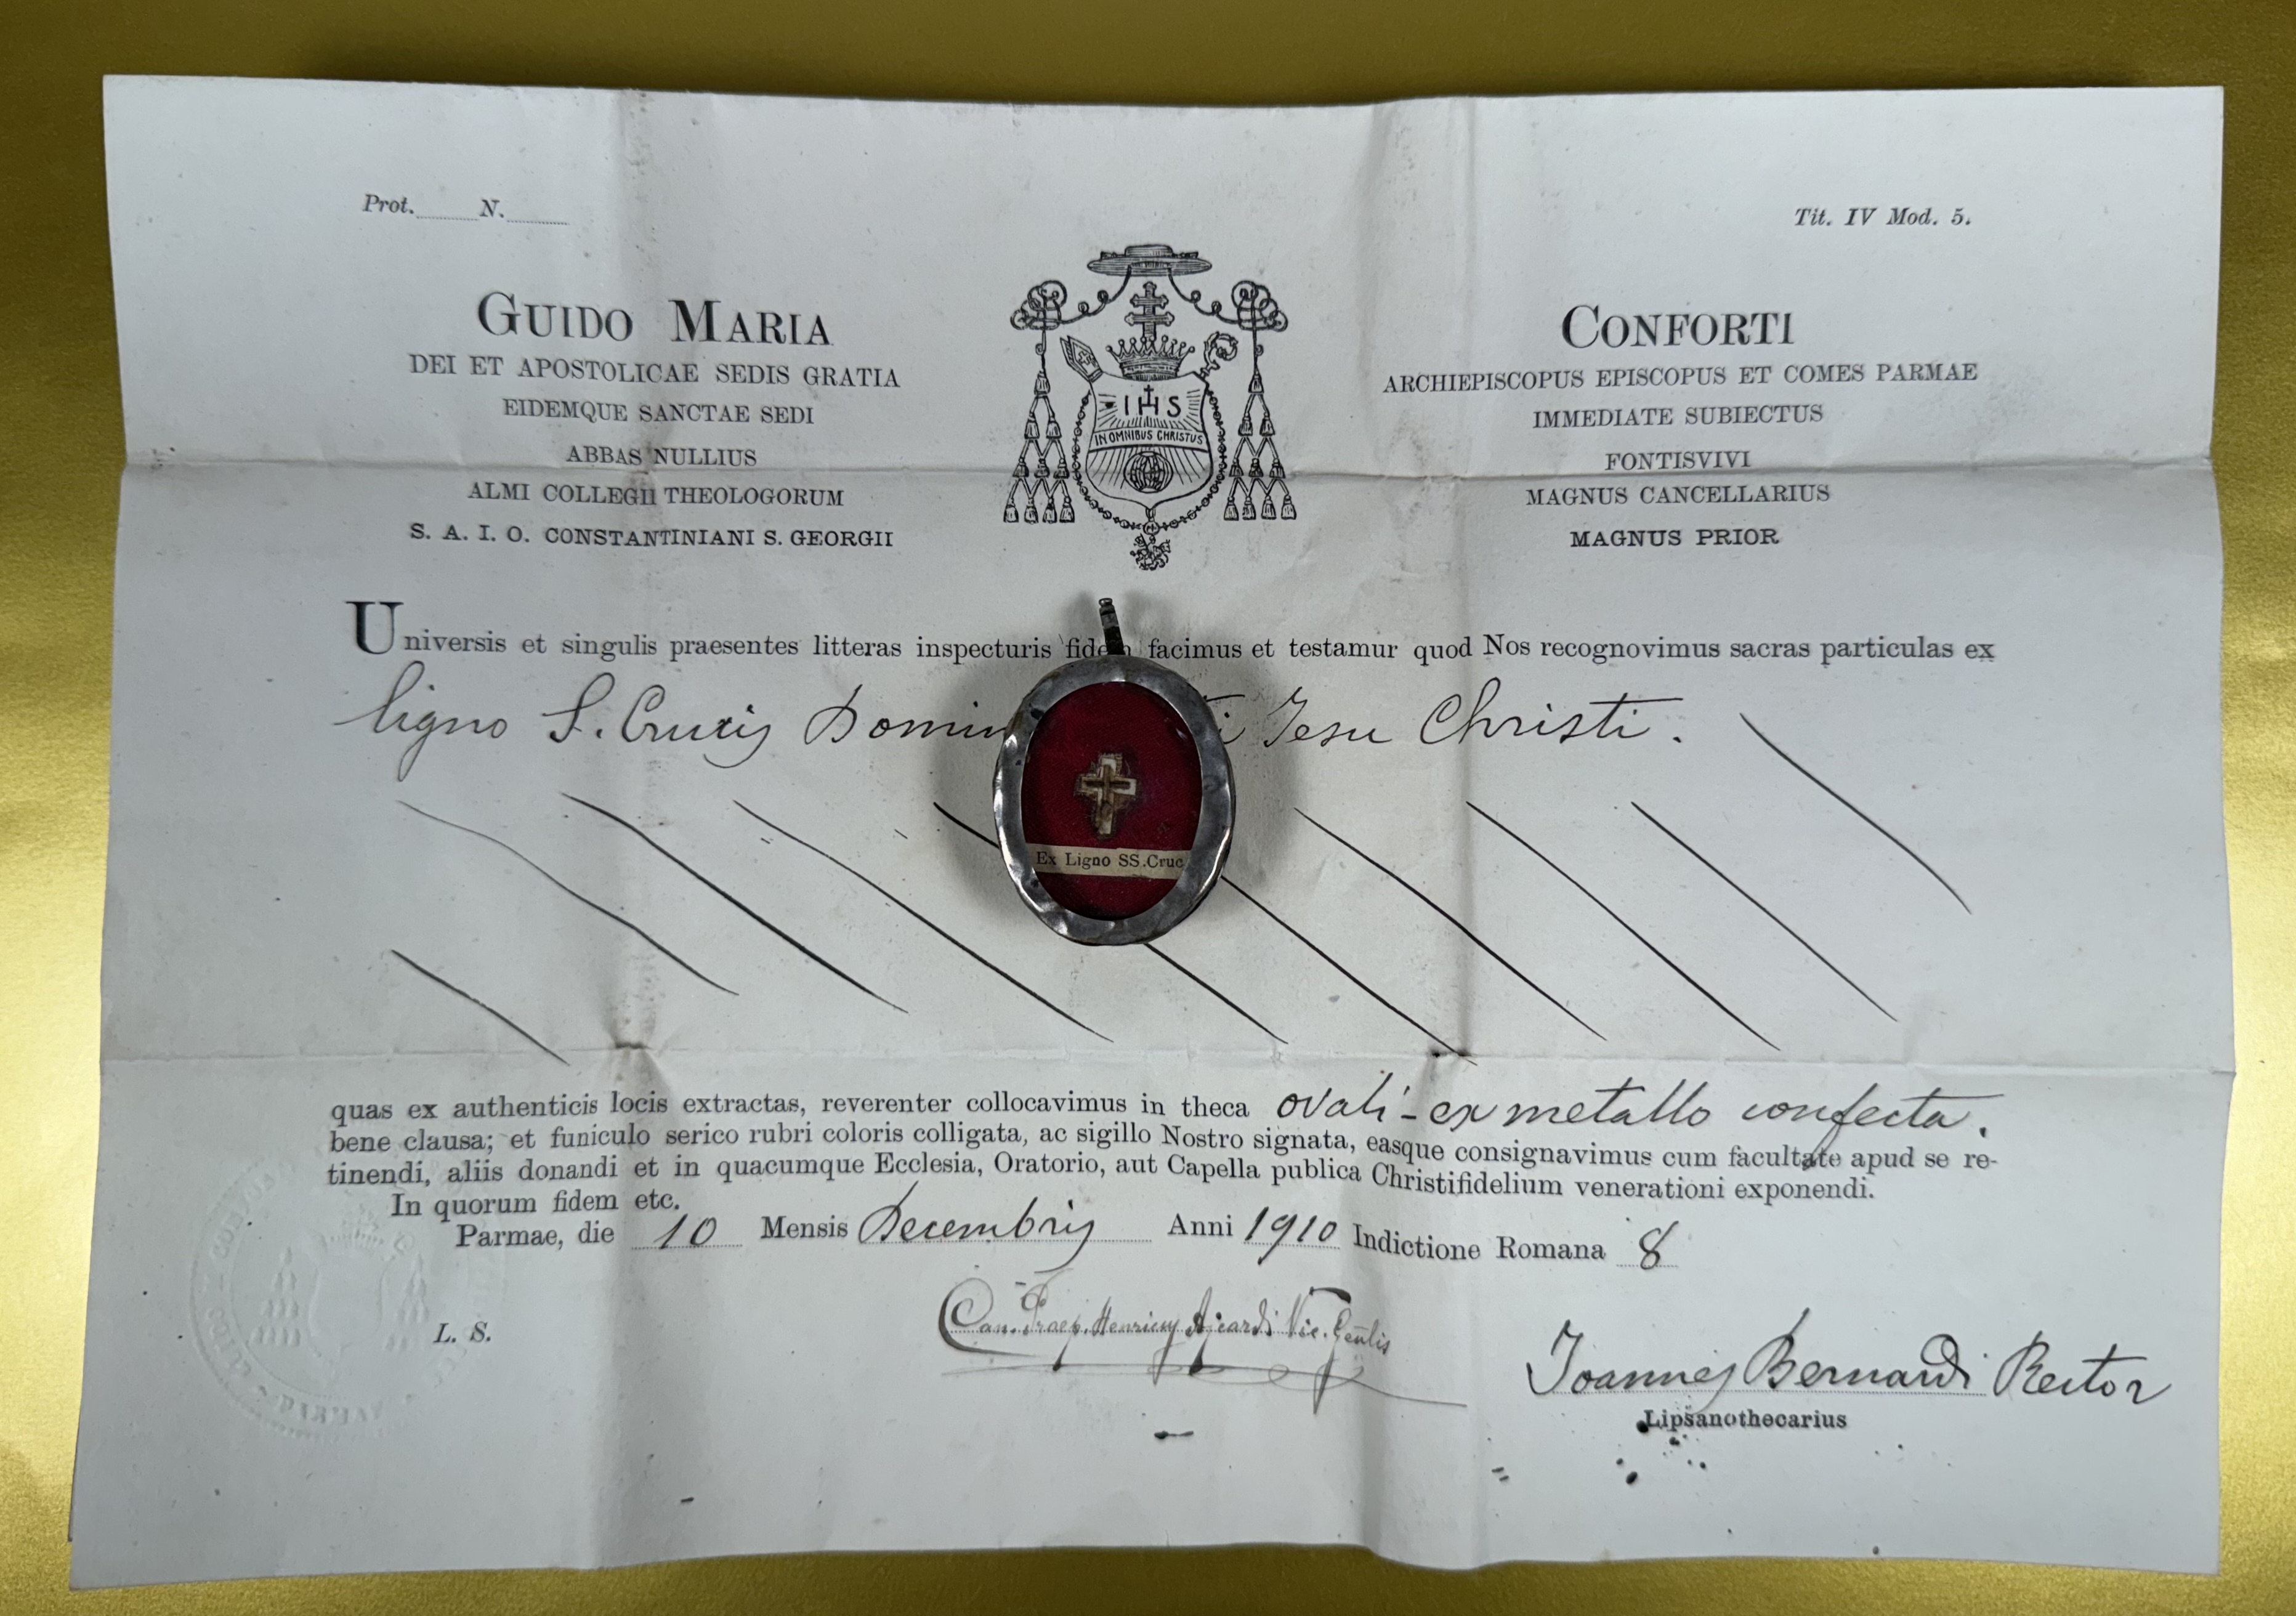 Prot. N.
Tit. IV Mod. 5.
GUIDO MARIA CONFORTI
DEI ET APOSTOLICAE SEDIS GRATIA ARCHIEPISCOPUS EPISCOPUS ET COMES PARMAE
EIDEMQUE SANCTAE SEDI IMMEDIATE SUBIECTUS
ABBAS NULLIUS FONTISVIVI
ALMI COLLEGII THEOLOGORUM MAGNUS CANCELLARIUS
S. A. I. O. CONSTANTINIANI S. GEORGII MAGNUS PRIOR
IHS
IN OMNIBUS CHRISTUS
Universis et singulis praesentes litteras inspecturis fidem facimus et testamur quod Nos recognovimus sacras particulas ex
ligno S. Crucis Domin i Jesu Christi.
Ex Ligno SS. Cruc
quas ex authenticis locis extractas, reverenter collocavimus in theca ovali - ex metallo confecta.
bene clausa; et funiculo serico rubri coloris colligata, ac sigillo Nostro signata, easque consignavimus cum facultate apud se re-
tinendi, aliis donandi et in quacumque Ecclesia, Oratorio, aut Capella publica Christifidelium venerationi exponendi.
In quorum fidem etc.
Parmae, die 10 Mensis Decembris Anni 1910 Indictione Romana 8
L. S.
Can. Praep. Henricus Ajcardi Vic. Genlis
Joannes Bernardi Rector
Lipsanothecarius
PARMAE